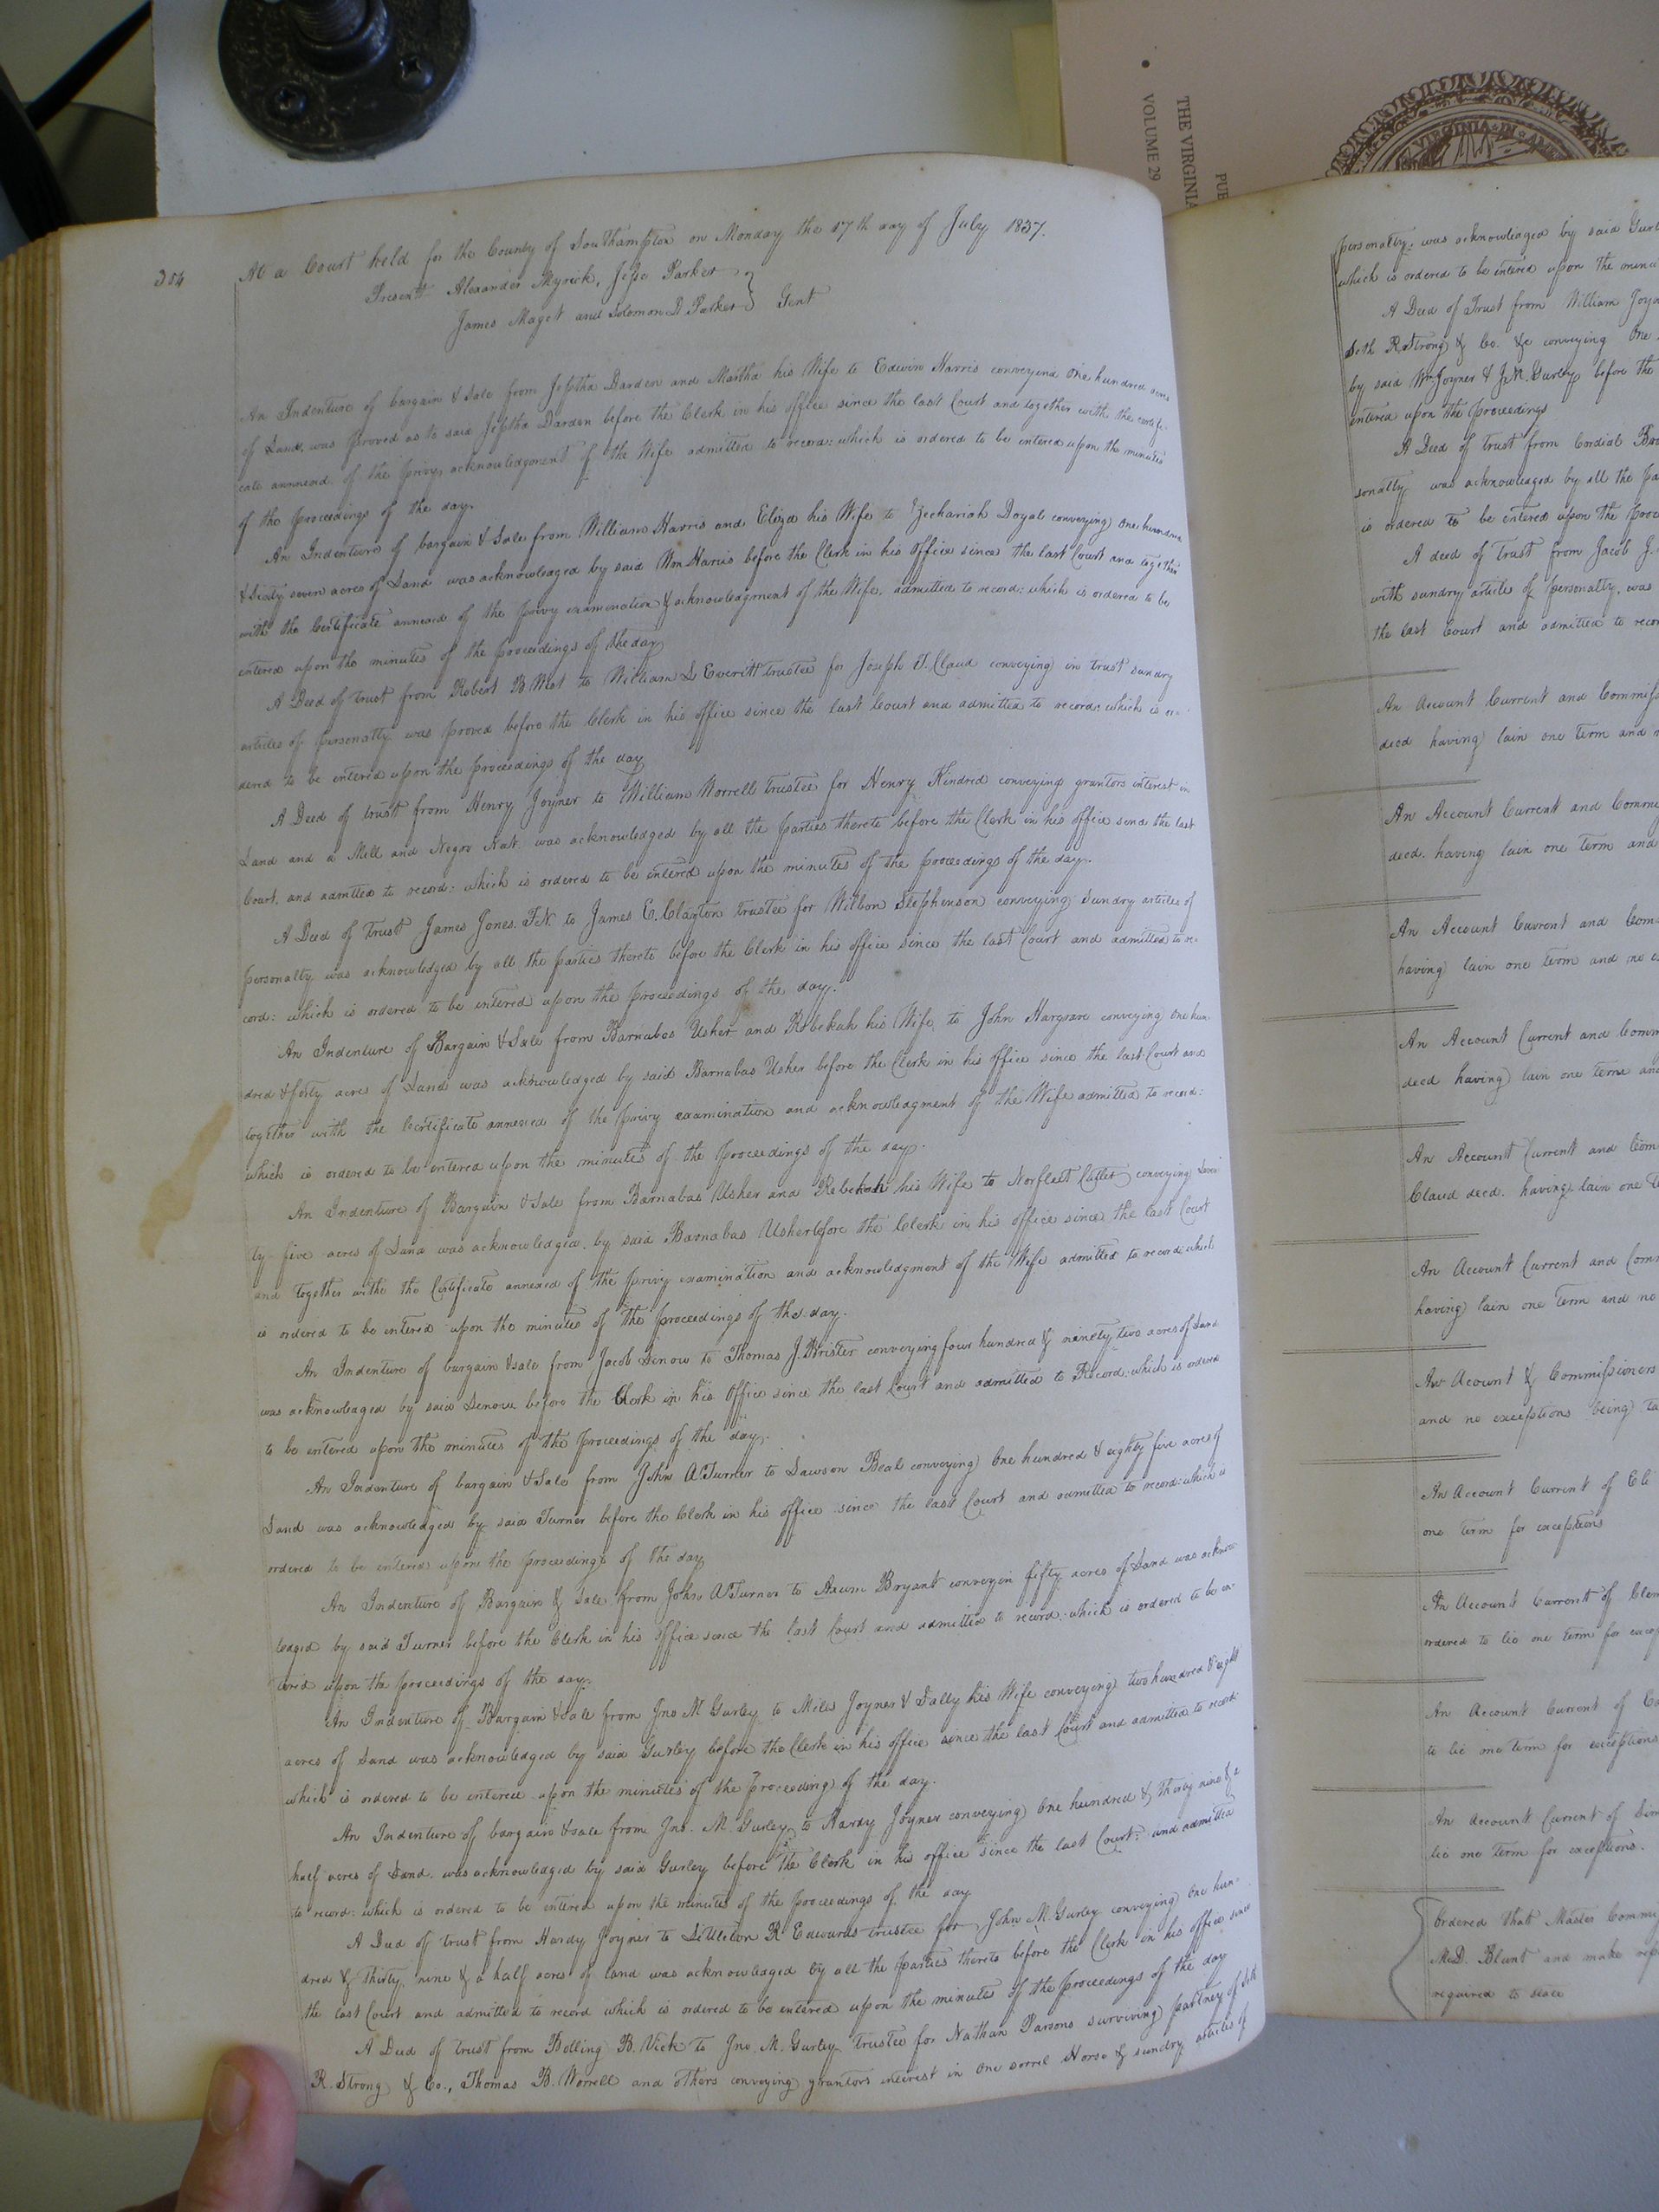 PUB
THE VIRGINIA
VOLUME 29
VIRGINIA IN A
384
At a Court held for the County of Southampton on Monday the 17th day of July 1837.
Present Alexander Myrick, Jesse Parker
James Maget and Solomon D. Parker } Gent
An Indenture of bargain & Sale from Jeptha Darden and Martha his Wife to Edwin Harris conveying One hundred acres
of Land, was proved as to said Jeptha Darden before the Clerk in his office since the last Court and together with the certifi-
cate annexed of the privy acknowledgment of the Wife admitted to record: which is ordered to be entered upon the minutes
of the proceedings of the day.
An Indenture of bargain & Sale from William Harris and Eliza his Wife to Zechariah Doyal conveying One hundred
& sixty seven acres of Land was acknowledged by said Wm Harris before the Clerk in his Office since the last Court and together
with the Certificate annexed of the privy examination & acknowledgment of the Wife, admitted to record: which is ordered to be
entered upon the minutes of the proceedings of the day
A Deed of trust from Robert B West to William L Everitt trustee for Joseph T. Claud conveying in trust sundry
articles of personalty was proved before the Clerk in his office since the last Court and admitted to record: which is or-
dered to be entered upon the proceedings of the day
A Deed of trust from Henry Joyner to William Worrell trustee for Henry Kindred conveying grantors interest in
Land and a Mill and Negro Nat was acknowledged by all the parties thereto before the Clerk in his office since the last
Court, and admitted to record: which is ordered to be entered upon the minutes of the proceedings of the day.
A Deed of Trust James Jones. F.N. to James E. Clayton trustee for Wilbon Stephenson conveying Sundry articles of
personalty was acknowledged by all the parties thereto before the Clerk in his office since the last Court and admitted to re-
cord: which is ordered to be entered upon the proceedings of the day.
An Indenture of Bargain & Sale from Barnabas Usher and Rebekah his Wife to John Hargrave conveying One hun-
dred & forty acre of Land was acknowledged by said Barnabas Usher before the Clerk in his office since the last Court and
together with the Certificate annexed of the privy examination and acknowledgment of the Wife admitted to record:
which is ordered to be entered upon the minutes of the proceedings of the day.
An Indenture of Bargain & Sale from Barnabas Usher and Rebekah his Wife to Norfleet conveying Seven
ty five acres of Land was acknowledged by said Barnabas Usher before the Clerk in his office since the last Court
and together with the Certificate annexed of the privy examination and acknowledgment of the Wife admitted to record: which
is ordered to be entered upon the minutes of the proceedings of the day.
An Indenture of bargain & sale from Jacob Lenow to Thomas J. Brister conveying four hundred & ninety two acres of Land
was acknowledged by said Lenow before the Clerk in his Office since the last Court and admitted to Record: which is ordered
to be entered upon the minutes of the proceedings of the day.
An Indenture of bargain & Sale from John A Turner to Lawson Beal conveying One hundred & eighty five acres of
Land was acknowledged by said Turner before the Clerk in his office since the last Court and admitted to record: which is
ordered to be entered upon the proceedings of the day
An Indenture of Bargain & Sale from John A Turner to Bryant conveyin fifty acres of Land was acknow
ledged by said Turner before the Clerk in his office since the last Court and admitted to record: which is ordered to be en-
tered upon the proceedings of the day.
An Indenture of Bargain & sale from Jno M Gurley to Miles Joyner & Sally his Wife conveying two hundred & eight
acres of Land was acknowledged by said Gurley before the Clerk in his office since the last Court and admitted to record:
which is ordered to be entered upon the minutes of the proceeding of the day.
An Indenture of bargain & sale from Jno. M. Gurley to Hardy Joyner conveying One hundred & thirty nine & a
half acres of Land was acknowledged by said Gurley before the Clerk in his office since the last Court: and admitted
to record: which is ordered to be entered upon the minutes of the proceedings of the day
A Deed of trust from Hardy Joyner to Littleton R Edwards trustee for John M. Gurley conveying One hun-
dred & thirty nine & a half acres of land was acknowledged by all the parties thereto before the Clerk in his office since
the last Court and admitted to record which is ordered to be entered upon the minutes of the proceedings of the day
A Deed of trust from Bolling B. Vick to Jno. M. Gurley trustee for Nathan Parsons surviving partner of Seth
R. Strong & Co., Thomas B. Worrell and others conveying grantors interest in One sorrel Horse & sundry articles of
personalty: was acknowledged by said Gurl
which is ordered to be entered upon the minu
A Deed of Trust from William Joyn
Seth R Strong & Co. &c conveying One
by said Wm. Joyner & J. M. Gurley before the
entered upon the proceedings
A Deed of trust from Cordial
sonalty was acknowledged by all the pa
is ordered to be entered upon the proce
A deed of Trust from Jacob J.
with sundry articles of personalty, was
the last Court and admitted to recor
An Account Current and Commiss
deced having lain one term and n
An Account Current and Comm
deced. having lain one term and
An Account Current and Com
having lain one term and no e
An Account Current and Comm
deced having lain one term and
An Account Current and Com
Claud deced. having lain one t
An Account Current and Comm
having lain one term and no
An Acount & Commissioners
and no exceptions being ta
An Account Current of Eli
one term for exceptions
An Account Current of Clem
ordered to lie one term for excep
An Account Current of Co
to lie one term for exceptions
An Account Current of
lie one term for exceptions.
Ordered that Master Commis
M.D. Blunt and make rep
required to state